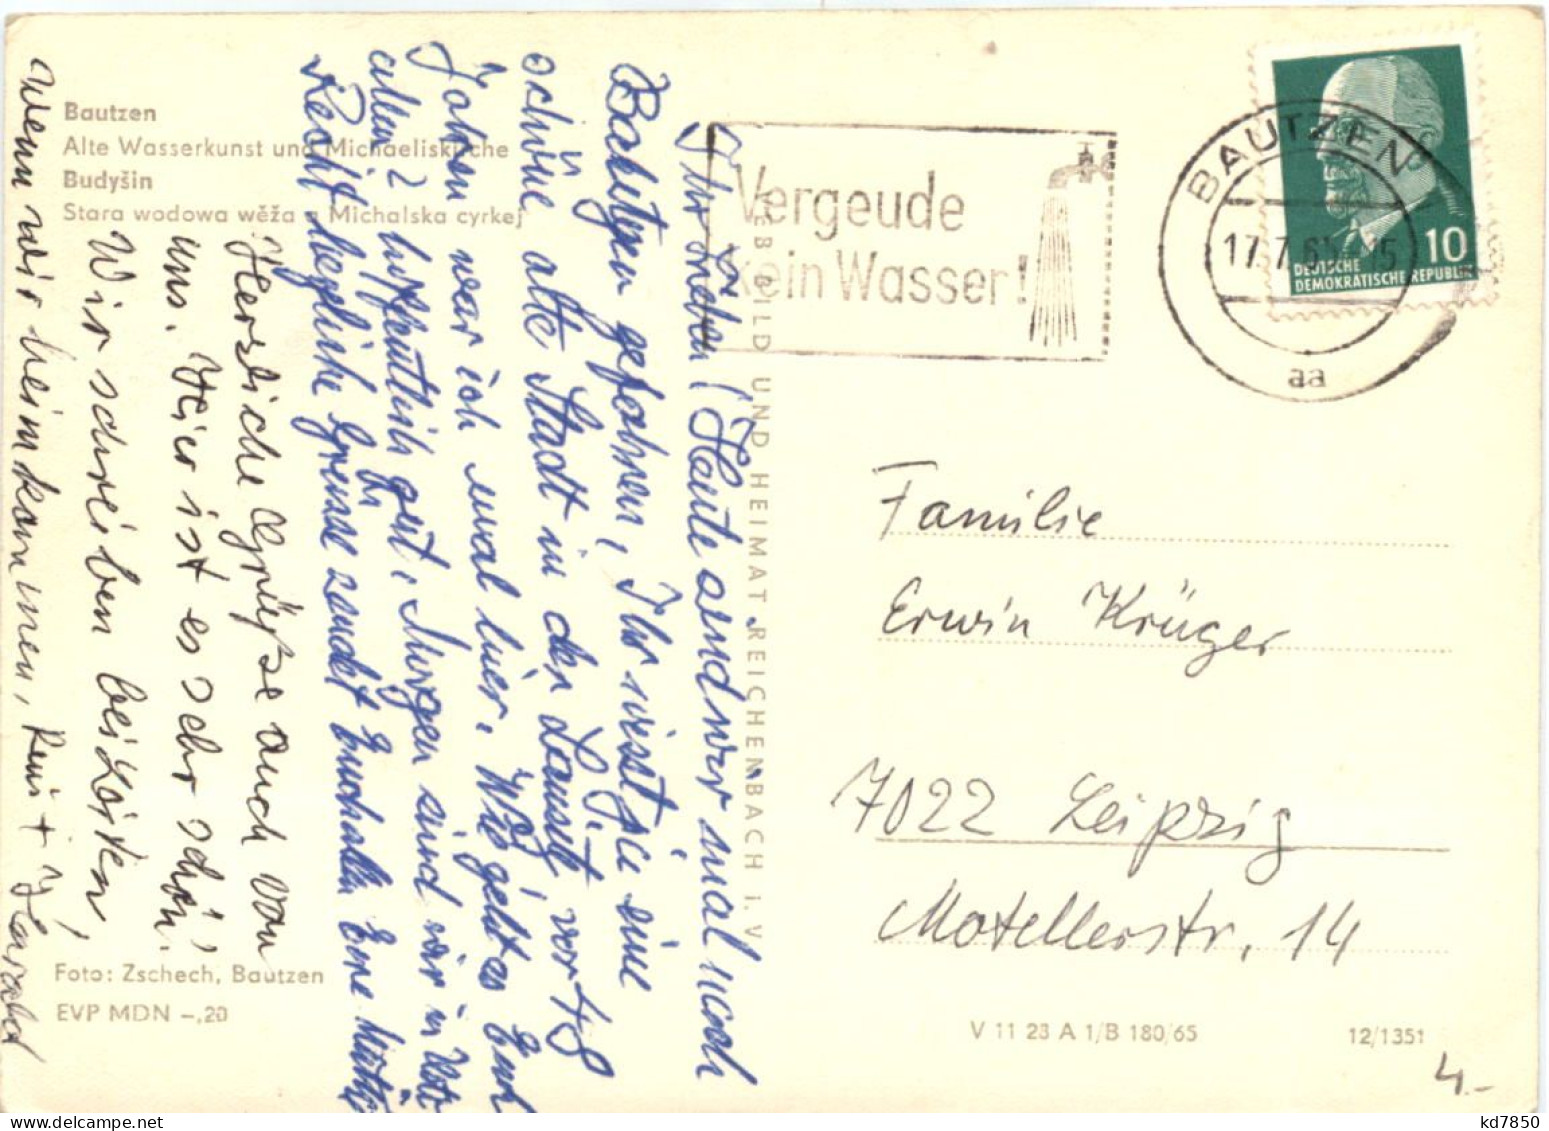 Bautzen
Alte Wasserkunst und Michaeliskirche
Budyšin
Stara wodowa wěža a Michalska cyrkej
Ihr Lieben! Heute sind wir mal nach
Bautzen gefahren, Ihr wisst ja eine
schöne alte Stadt in der Lausitz, vor 48
Jahren war ich mal hier. Wie geht es Euch
allen? hoffentlich gut, Morgen sind wir in
Recht herzliche Grüsse sendet Euch allen Eure
Herzliche Grüße auch von
uns. Hier ist es sehr schön.
Wir schreiben bei Zeiten,
wenn wir heimkommen, + Harald
Foto: Zschech, Bautzen
EVP MDN –,20
BILD UND HEIMAT REICHENBACH I. V
Vergeude
kein Wasser!
BAUTZEN
17.7.65-15
aa
10
DEUTSCHE
DEMOKRATISCHE REPUBLIK
Familie
Erwin Krüger
7022 Leipzig
Motellerstr. 14
V 11 28 A 1/B 180/65
12/1351
4.-
kd7850